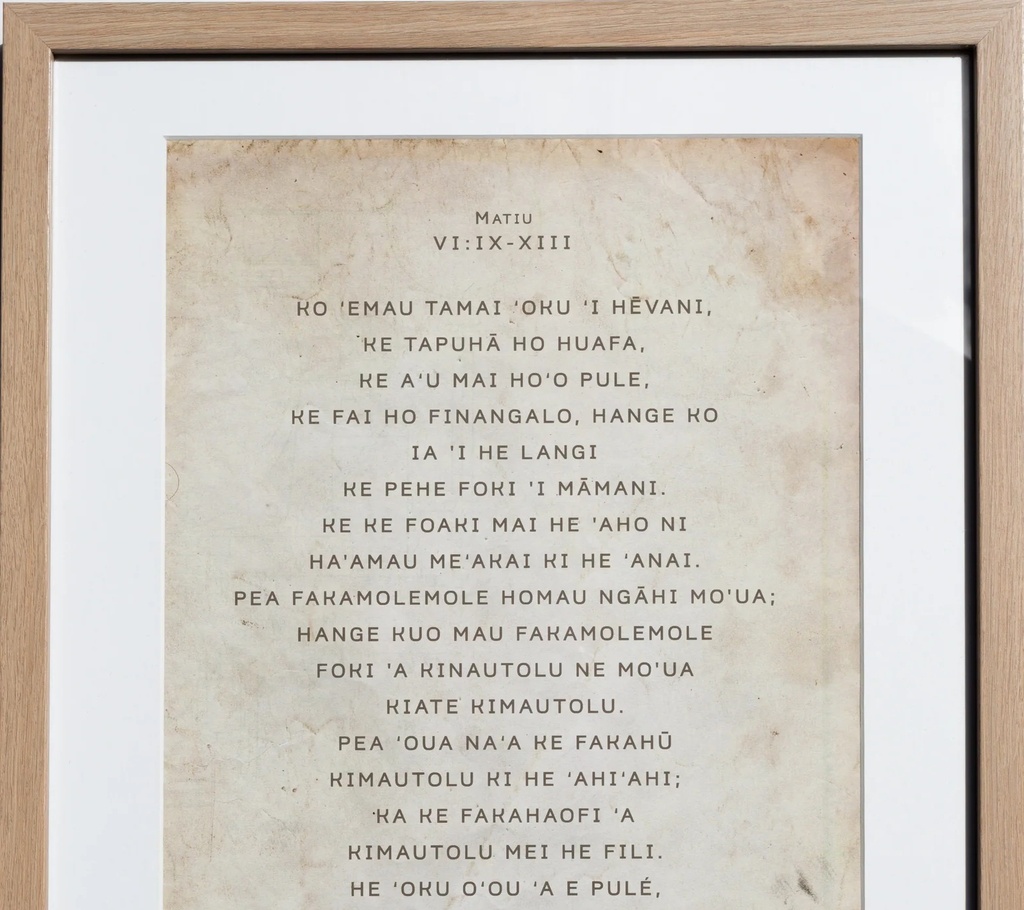 Matiu
VI:IX-XIII
KO ‘EMAU TAMAI ‘OKU ‘I HĒVANI,
KE TAPUHĀ HO HUAFA,
KE A‘U MAI HO‘O PULE,
KE FAI HO FINANGALO, HANGE KO
IA 'I HE LANGI
KE PEHE FOKI 'I MĀMANI.
KE KE FOAKI MAI HE 'AHO NI
HA'AMAU ME‘AKAI KI HE ‘ANAI.
PEA FAKAMOLEMOLE HOMAU NGĀHI MO'UA;
HANGE KUO MAU FAKAMOLEMOLE
FOKI 'A KINAUTOLU NE MO'UA
KIATE KIMAUTOLU.
PEA ‘OUA NA‘A KE FAKAHŪ
KIMAUTOLU KI HE ‘AHI‘AHI;
KA KE FAKAHAOFI ‘A
KIMAUTOLU MEI HE FILI.
HE ‘OKU O‘OU ‘A E PULÉ,